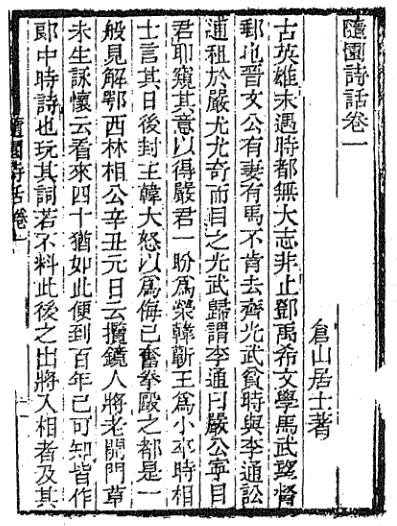 隨園詩話卷一
倉山居士著
古英雄未遇時都無大志非止鄧禹希文學馬武望督
郵也晉文公有妻有馬不肯去齊光武貧時與李通訟
逋租於嚴尤尤奇而目之光武歸謂李通曰嚴公寧目
君耶窺其意以得嚴君一盼爲榮韓蘄王爲小卒時相
士言其日後封王韓大怒以爲侮己奮拳毆之都是一
般見解鄂西林相公辛丑元日云攬鏡人將老開門草
未生詠懷云看來四十猶如此便到百年已可知皆作
郎中時詩也玩其詞若不料此後之出將入相者及其
隨園詩話 卷一
一